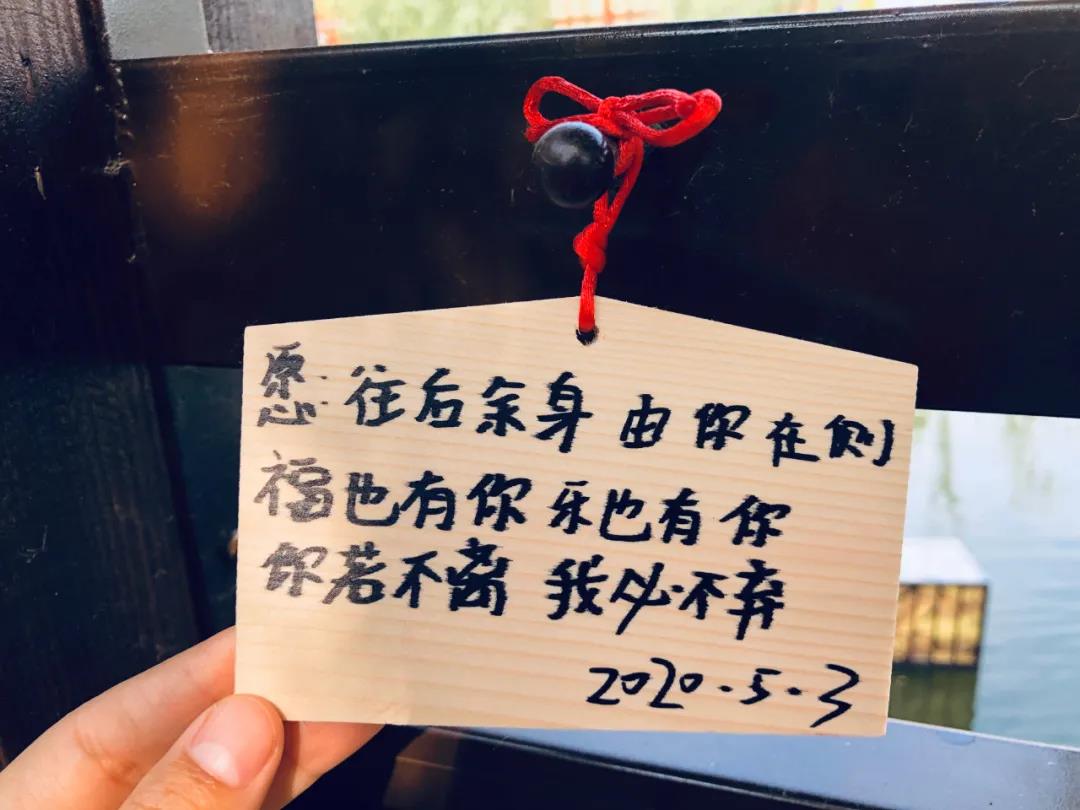 愿往后余身 由你在侧
福也有你 乐也有你
你若不离 我必不弃
2020.5.3